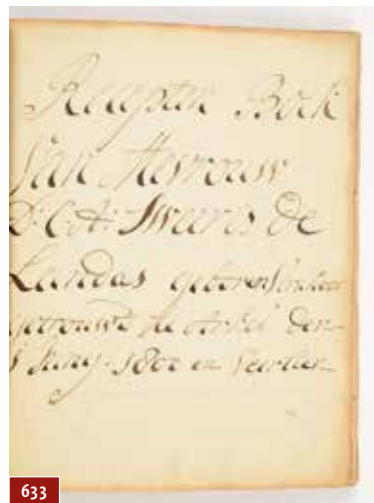 Recepten Boek
Van Mevrouw
D: C: A: Sweerts de
Landas geboren
getrouwd te den
Juny 1800 en Veertien
633